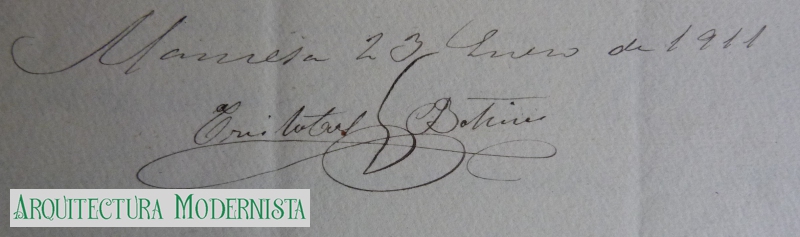 Manresa 23 Enero de 1911
Cristobal Botines
ARQUITECTURA MODERNISTA